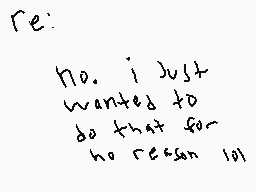 re:
no. i just
wanted to
do that for
no reason lol